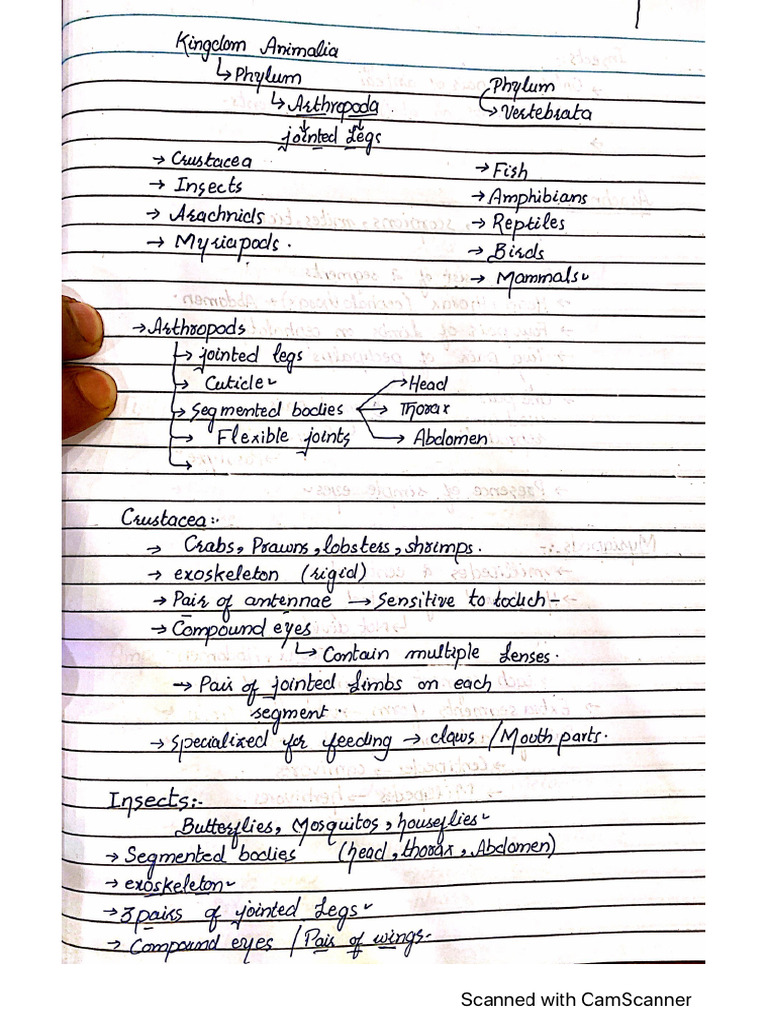 Kingdom Animalia
↳ Phylum
↳ Arthropoda
jointed legs
→ Crustacea
→ Insects
→ Arachnids
→ Myriapods.
Phylum
→ Vertebrata
→ Fish
→ Amphibians
→ Reptiles
→ Birds
→ Mammals
→ Arthropods
→ jointed legs
→ Cuticle
→ Segmented bodies
→ Head
→ Thorax
→ Abdomen
→ Flexible joints
Crustacea:-
→ Crabs, Prawns, lobsters, shrimps.
→ exoskeleton (rigid)
→ Pair of antennae → Sensitive to touch-
→ Compound eyes
↳ Contain multiple lenses.
→ Pair of jointed limbs on each
segment
→ specialized for feeding → claws / Mouth parts.
Insects:-
Butterflies, Mosquitos, houseflies
→ Segmented bodies (head, thorax, Abdomen)
→ exoskeleton
→ 3 pairs of jointed legs
→ Compound eyes / Pair of wings.
Scanned with CamScanner